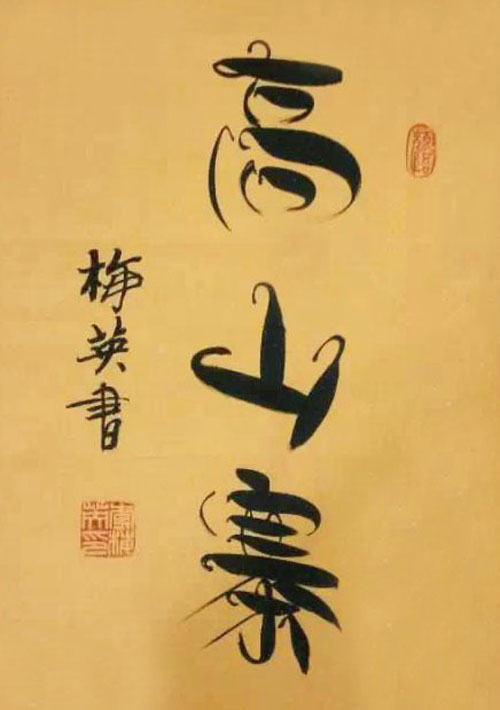 高山寨
梅英书